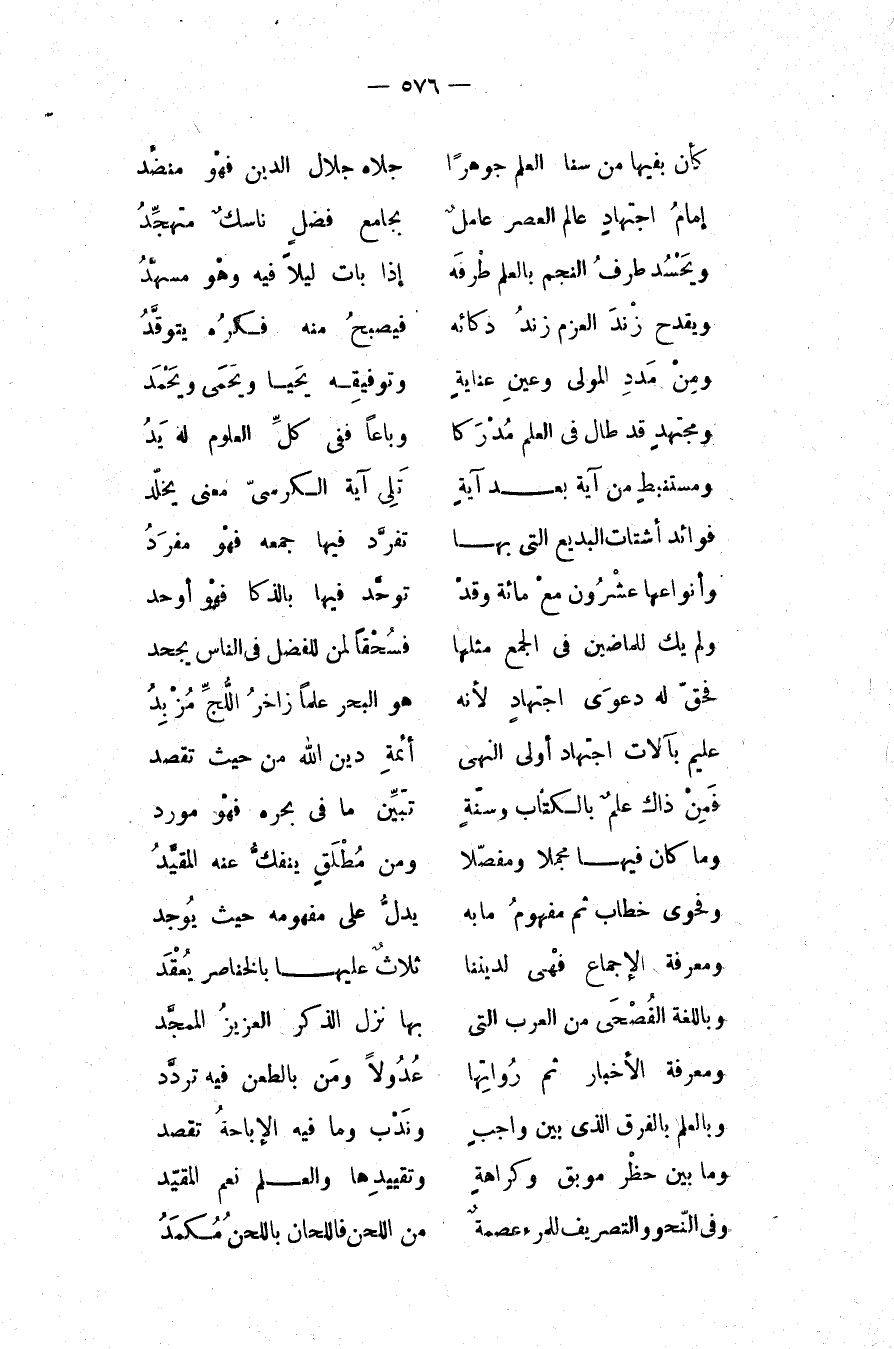 — ٥٧٦ —
كأن بفيها من سنا العلم جوهرًا جلاه جلال الدين فهْو منضَّد
إمامُ اجتهادٍ عالم العصر عاملٌ بجامع فضلٍ ناسكٌ متهجِّدُ
ويَحْسُد طرفُ النجم بالعلم طْرفَه إذا بات ليلاً فيه وهْو مسهَّدُ
ويقدح زْندَ العزم زندُ ذكائه فيصبحُ منه فـكرُه يتوقَّدُ
ومِنْ مَددِ المولى وعينِ عنايةٍ وتوفيقِـه يَحَيـا ويَحَمَى ويَحْمَد
ومجتهدٍ قد طال فى العلم مُدْرَكا وباعاً ففى كلِّ العلوم له يَدُ
ومستنبطٍ من آية بعـد آيةٍ تَلِى آية الـكرسىّ معنى يخلّد
فوائد أشتات البديع التى بهـا تفرَّد فيها جمعه فهْو مفرَدُ
وأنواعها عشْرُون معْ مائة وقدْ توحَّد فيها بالذكا فهْو أوحد
ولم يك للماضين فى الجمع مثلها فسُحْقاً لمن للفضل فى الناس يجحد
فحقّ له دعوَى اجتهادٍ لأنه هو البحر علماً زاخرُ اللُّجِّ مُزْبِدُ
عليم بآلات اجتهاد أولى النهى أئمةِ دين الله من حيث تقصد
فَمِنْ ذاك علمٌ بالـكتاب وسنّةٍ تبَيِّن ما فى بحره فهْو مورد
وما كان فيهـا مجملا ومفصّلا ومن مُطْلَقٍ ينفكُّ عنه المقيَّدُ
وفحوى خطاب ثم مفهومُ ما به يدلُّ على مفهومه حيث يُوجد
ومعرفة الإجماع فهْى لديننا ثلاثٌ عليهـا بالخناصر يُعْقَد
وباللغة الفُصْحَى من العرب التى بها نزل الذكر العزيزُ الممجَّد
ومعرفة الأخبار ثم رُواتِها عُدُولاً ومَن بالطعن فيه تردَّد
وبالعلم بالفرق الذى بين واجبٍ ونَدْب وما فيه الإباحةُ تقصد
وما بين حظْر موبق وكراهةٍ وتقييدِها والعـلم نعم المقيّد
وفى النّحو والتصريف للمرء عصمةٌ من اللحن فاللحان باللحن مُـكمَدُ